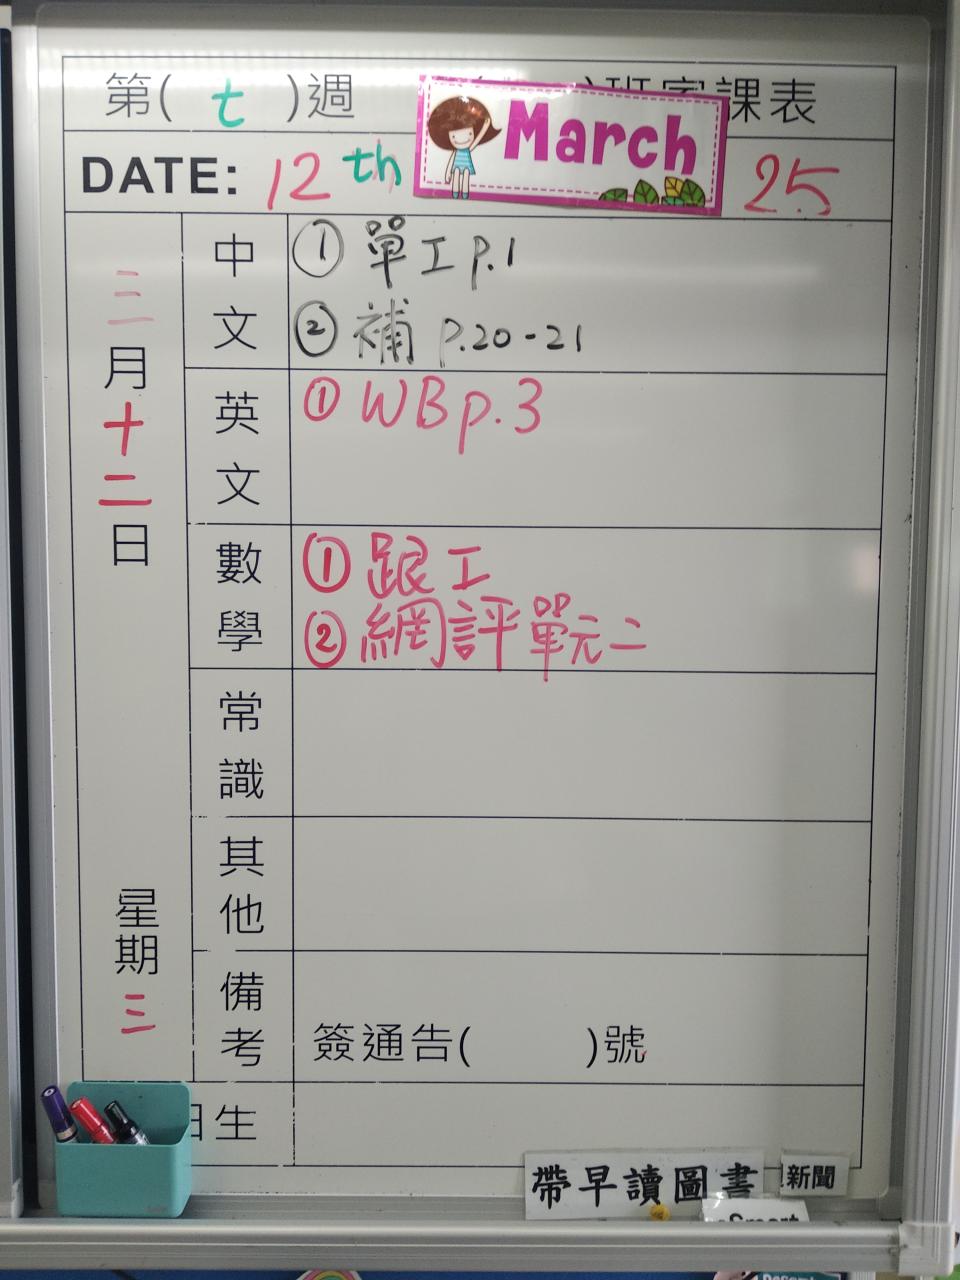 第( 七 )週 )班家課表
DATE: 12th March 25
三月十二日
星期三
中文
① 單工 p.1
② 補 p.20-21
英文
① WB p.3
數學
① 跟工
② 網評單元二
常識
其他
備考
簽通告( )號
日生
帶早讀圖書
新聞